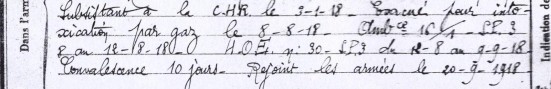 Dans l'arm
Subsistant à la C.H.R. le 3-1-18 - Evacué pour into-
xication par gaz le 8-8-18. Ambce 16/1 - S.P. 3
8 au 12-8-18 H.O.E. n: 30 - S.P. 3 du 12-8 au 9-9-18
Convalescence 10 jours - Rejoint les armées le 20-9-1918
Indication de